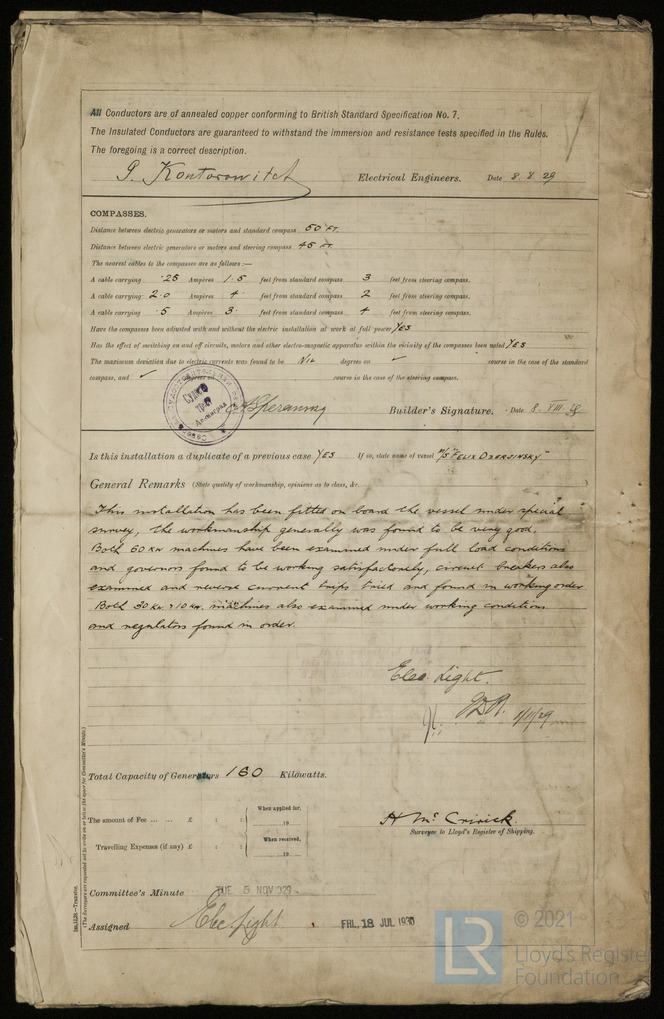 All Conductors are of annealed copper conforming to British Standard Specification No. 7.
The Insulated Conductors are guaranteed to withstand the immersion and resistance tests specified in the Rules.
The foregoing is a correct description.
Kontorowitch Electrical Engineers. Date 8. 8. 29
COMPASSES.
Distance between electric generators or motors and standard compass 50 FT.
Distance between electric generators or motors and steering compass 45 FT.
The nearest cables to the compasses are as follows:—
A cable carrying .25 Ampères 1.5 feet from standard compass 3 feet from steering compass.
A cable carrying 2.0 Ampères 4 feet from standard compass 2 feet from steering compass.
A cable carrying .5 Ampères 3 feet from standard compass 4 feet from steering compass.
Have the compasses been adjusted with and without the electric installation at work at full power YES
Has the effect of switching on and off circuits, motors and other electro-magnetic apparatus within the vicinity of the compasses been noted YES
The maximum deviation due to electric currents was found to be Nil degrees on ✓ course in the case of the standard
compass, and ✓ course in the case of the steering compass.
Builder's Signature. Date 8. VIII 29
Is this installation a duplicate of a previous case YES If so, state name of vessel M/S "FELIX DZERJINSKY"
General Remarks (State quality of workmanship, opinions as to class, &c.
This installation has been fitted on board the vessel under special
survey, the workmanship generally was found to be very good.
Both 60 KW machines have been examined under full load conditions
and governors found to be working satisfactorily, circuit breakers also
examined and reverse current trips tried and found in working order
Both 30 KW & 10 KW. machines also examined under working conditions
and regulators found in order.
Elec. Light.
1/11/29
Total Capacity of Generators 160 Kilowatts.
The amount of Fee ... ... £ : : When applied for, 19
Travelling Expenses (if any) £ : : When received, 19
H Mc Cririck.
Surveyor to Lloyd's Register of Shipping.
Committee's Minute TUE 5 NOV 1929
Assigned Elec Light FRI. 18 JUL 1930
© 2021
Lloyd's Register
Foundation